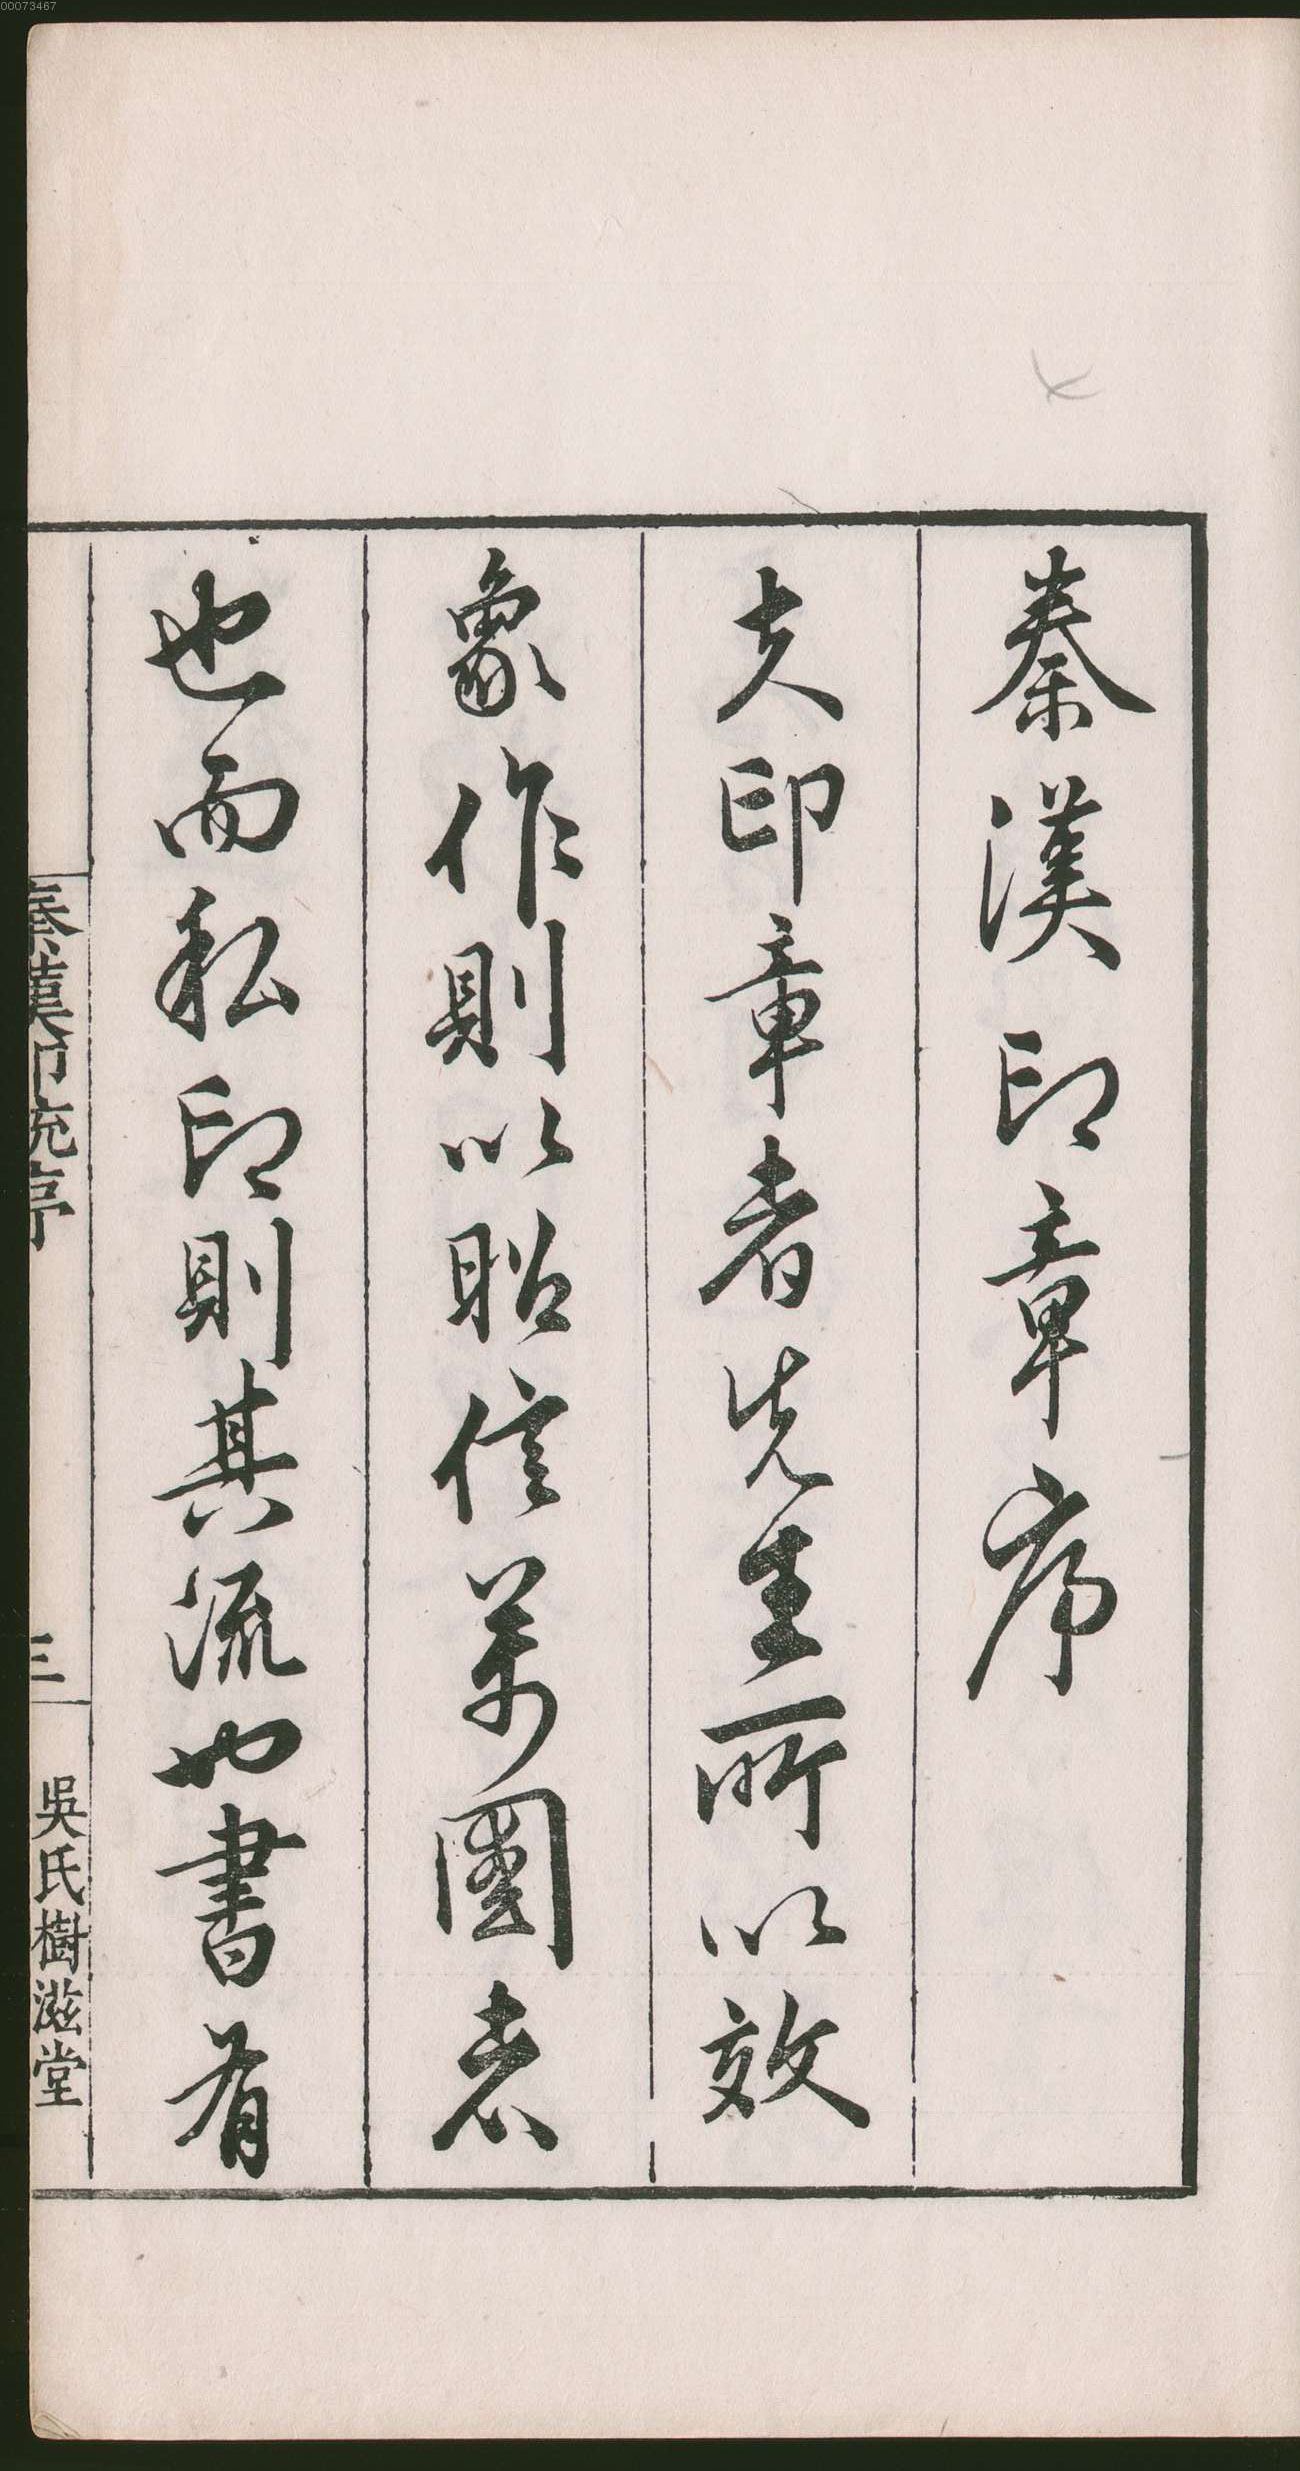 秦漢印章序
夫印章者先王所以效
象作則以昭信萬國者
也而私印則其流也書有
秦漢印統序
三
吳氏樹滋堂
00073467